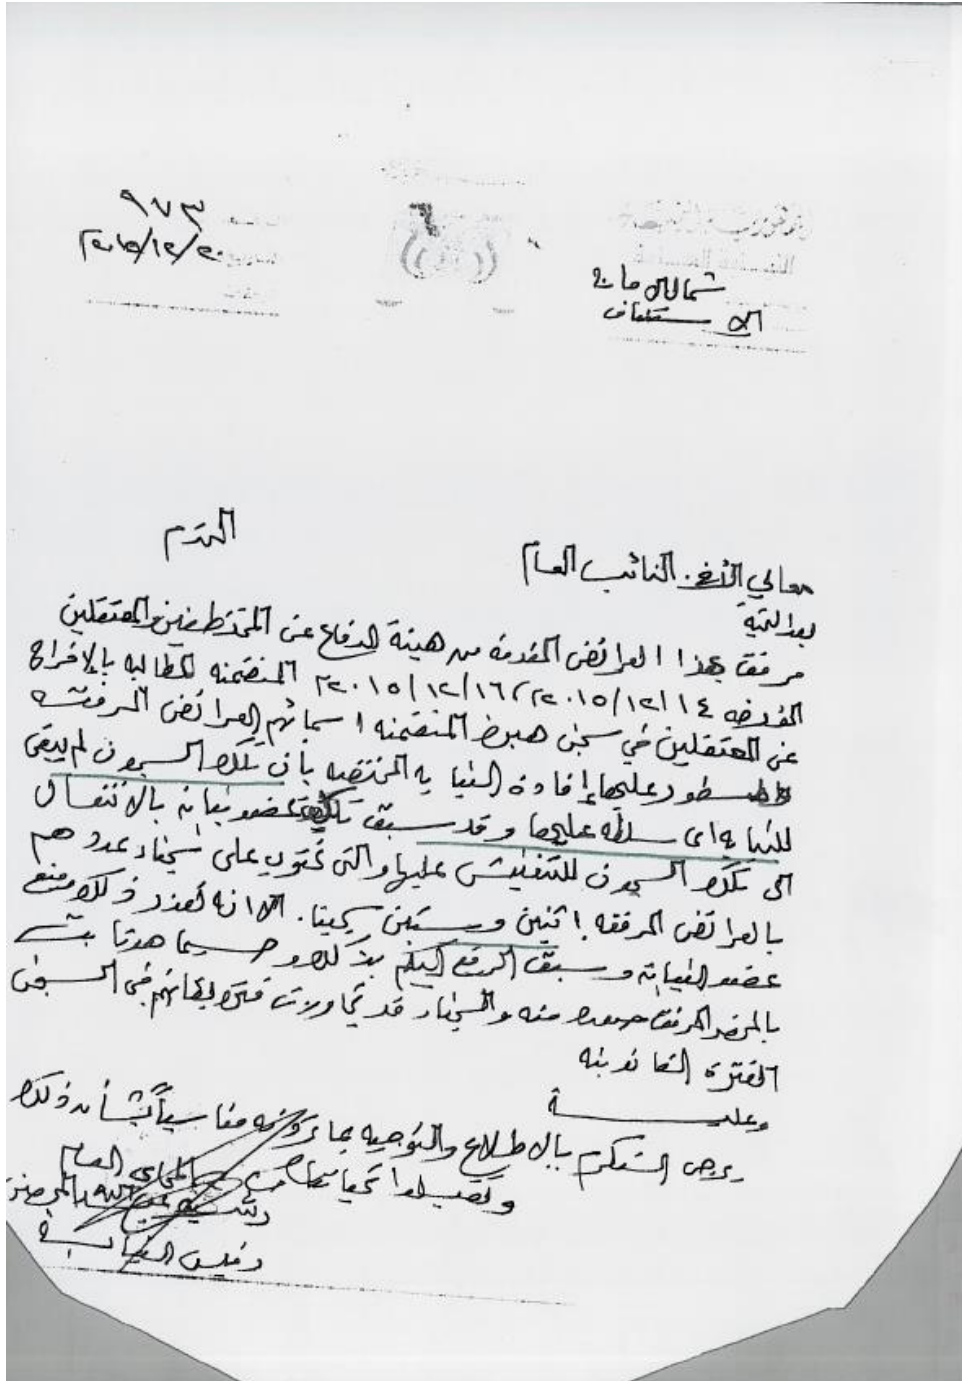 ٩٧٣
٢٠١٥/١٢/٢٠
شمال الأمانة
الاستئناف
معالي الأخ. النائب العام المحترم
بعد التحية
مرفق بهذا العرائض المقدمة من هيئة الدفاع عن المختطفين والمعتقلين
المؤرخه ٢٠١٥/١٢/١٤، ٢٠١٥/١٢/١٦ المتضمنه المطالبه بالإفراج
عن المعتقلين في سجن هبره المتضمنه اسمائهم العرائض المرفقه
والمسطور عليها إفادة النيابه المختصه بأن تلك السجون لم يبقى
للنيابه اى سلطه عليها وقد سبق تكليف عضو نيابه بالانتقال
الى تلك السجون للتفتيش عليها والتى تحتوي على سجناء عددهم
بالعرائض المرفقه اثنين وستين سجينا. الا انه تعذر ذلك ومنع
عضو النيابه وسبق الرفع اليكم بذلك وحسيما
بالمرفق صوره منه والسجناء قد تجاوزت فترة بقائهم في السجن
الفتره القانونيه
وعليــــــه
يرجى التكرم بالاطلاع والتوجيه بما ترونه مناسباً بشأن ذلك
وتفضلوا تحياتنا المحامي العام
رئيس النيابة